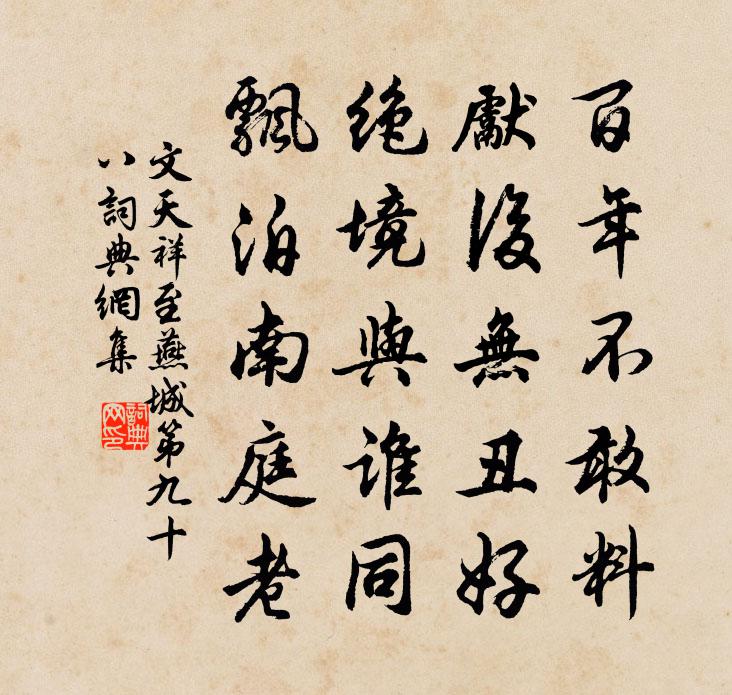 百年不敢料
獻後無丑好
絕境與誰同
飄泊南庭老
文天祥至燕城第九十
八詞典網集
詞典网印